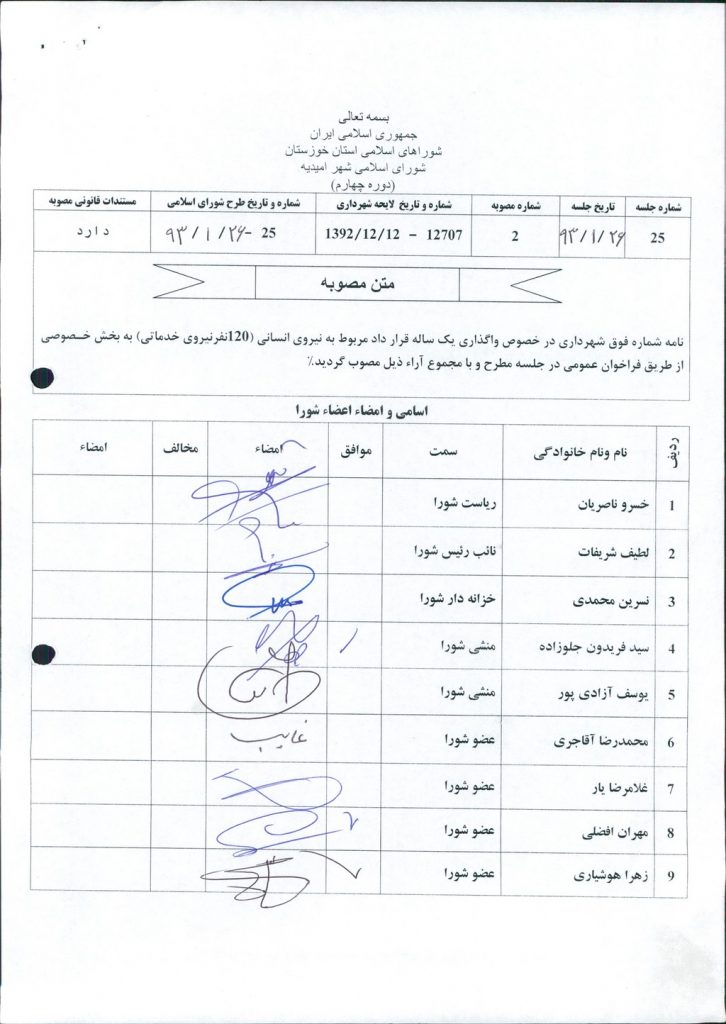 بسمه تعالی
جمهوری اسلامی ایران
شوراهای اسلامی استان خوزستان
شورای اسلامی شهر امیدیه
(دوره چهارم)
شماره جلسه تاریخ جلسه شماره مصوبه شماره و تاریخ لایحه شهرداری شماره و تاریخ طرح شورای اسلامی مستندات قانونی مصوبه
25 ۹۳/۱/۲۶ 2 12707 – 1392/12/12 25 -۹۳/۱/۲۶ دارد
متن مصوبه
نامه شماره فوق شهرداری در خصوص واگذاری یک ساله قرار داد مربوط به نیروی انسانی (120نفرنیروی خدماتی) به بخش خـصوصی
از طریق فراخوان عمومی در جلسه مطرح و با مجموع آراء ذیل مصوب گردید.٪
اسامی و امضاء اعضاء شورا
ردیف نام ونام خانوادگی سمت موافق امضاء مخالف امضاء
1 خسرو ناصریان ریاست شورا
2 لطیف شریفات نائب رئیس شورا
3 نسرین محمدی خزانه دار شورا
4 سید فریدون جلوزاده منشی شورا
5 یوسف آزادی پور منشی شورا
6 محمدرضا آقاجری عضو شورا غایب
7 غلامرضا یار عضو شورا
8 مهران افضلی عضو شورا
9 زهرا هوشیاری عضو شورا